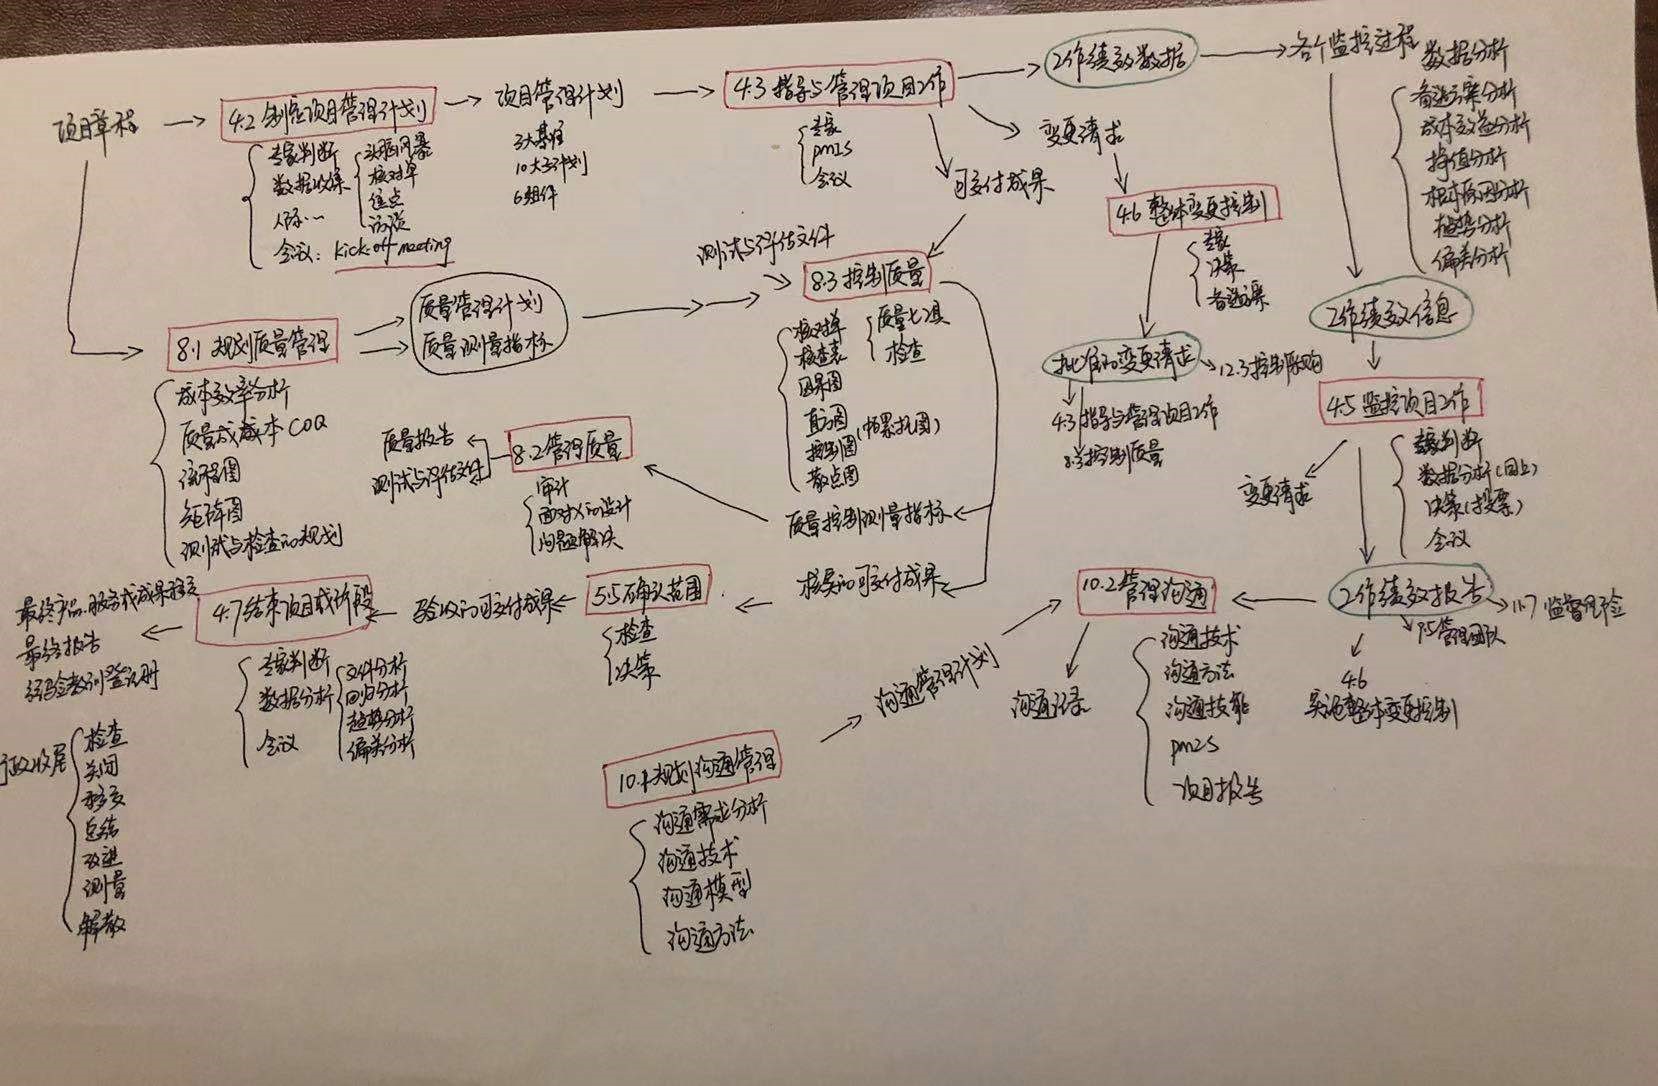 项目章程
4.2 制定项目管理计划
专家判断
数据收集
头脑风暴
核对单
焦点
访谈
人际…
会议：kick-off meeting
项目管理计划
3大基准
10大子计划
6组件
4.3 指导与管理项目工作
专家
PMIS
会议
工作绩效数据
各个监控过程
数据分析
备选方案分析
成本效益分析
挣值分析
根本原因分析
趋势分析
偏差分析
变更请求
可交付成果
4.6 整体变更控制
专家
决策
备选方案
测试与评估文件
8.3 控制质量
核对单
核查表
因果图
直方图
控制图(帕累托图)
散点图
质量七工具
检查
8.1 规划质量管理
成本效率分析
质量成本COQ
流程图
矩阵图
测试与检查的规划
质量管理计划
质量测量指标
批准的变更请求
12.3 控制采购
4.3 指导与管理项目工作
8.3 控制质量
工作绩效信息
4.5 监控项目工作
专家判断
数据分析(同上)
决策(投票)
会议
变更请求
质量报告
测试与评估文件
8.2 管理质量
审计
面对X的设计
问题解决
质量控制测量指标
核实的可交付成果
5.5 确认范围
检查
决策
验收的可交付成果
4.7 结束项目或阶段
专家判断
数据分析
会议
文件分析
回归分析
趋势分析
偏差分析
最终产品、服务或成果移交
最终报告
经验教训登记册
行政收尾
检查
关闭
移交
总结
改进
测量
解散
10.2 管理沟通
沟通技术
沟通方法
沟通技能
PMIS
项目报告
沟通记录
沟通管理计划
10.1 规划沟通管理
沟通需求分析
沟通技术
沟通模型
沟通方法
工作绩效报告
11.7 监督风险
9.5 管理团队
4.6
实施整体变更控制